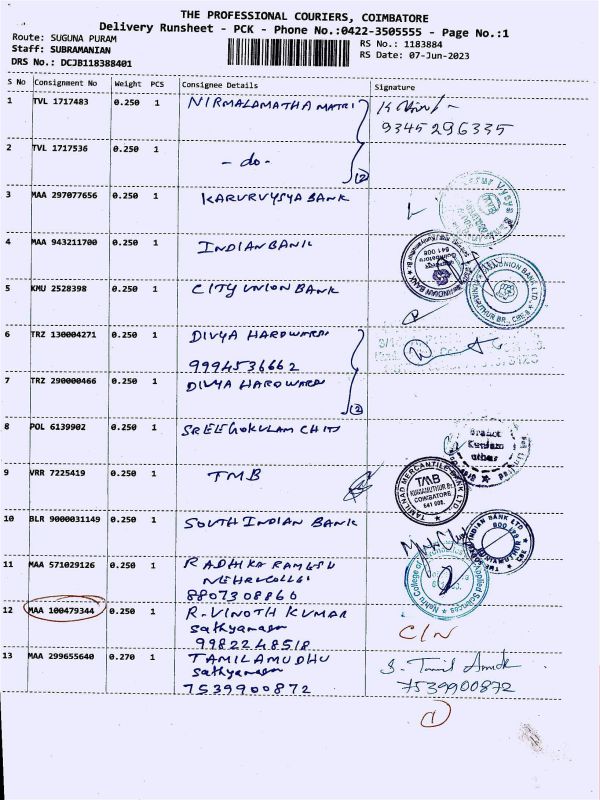 THE PROFESSIONAL COURIERS, COIMBATORE
Delivery Runsheet - PCK - Phone No.:0422-3505555 - Page No.:1
Route: SUGUNA PURAM
Staff: SUBRAMANIAN
DRS No.: DCJB118388401
RS No.: 1183884
RS Date: 07-Jun-2023
S No Consignment No Weight PCS Consignee Details Signature
1 TVL 1717483 0.250 1 NIRMALAMATHA MATRI
9345296335
2 TVL 1717536 0.250 1 - do - (2)
3 MAA 297077656 0.250 1 KARURVYSYA BANK
4 MAA 943211700 0.250 1 INDIAN BANK
INDIAN BANK
641 008
5 KMU 2528398 0.250 1 CITY UNION BANK
UNION BANK LTD.
6 TRZ 130004271 0.250 1 DIVYA HARDWARE
9994536662
7 TRZ 290000466 0.250 1 DIVYA HARDWARE (2)
8 POL 6139902 0.250 1 SREE GOKULAM CHITS
Branch
9 VRR 7225419 0.250 1 TMB
TAMILNAD MERCANTILE BANK LTD.
TMB
KUNIAMUTHUR Br.
COIMBATORE
641 008.
10 BLR 9000031149 0.250 1 SOUTH INDIAN BANK
THE SOUTH INDIAN BANK LTD
KUNIAMUTHUR
CBE
11 MAA 571029126 0.250 1 RADHIKA RAMESH
NEHRU COLLEGE
8807308860
Nehru College of Applied Sciences
12 MAA 100479344 0.250 1 R. VINOTH KUMAR
Sathyanagar
9982248518
C/N
13 MAA 299655640 0.270 1 TAMILAMUDHU
Sathyanagar
7539900872
7539900872
1